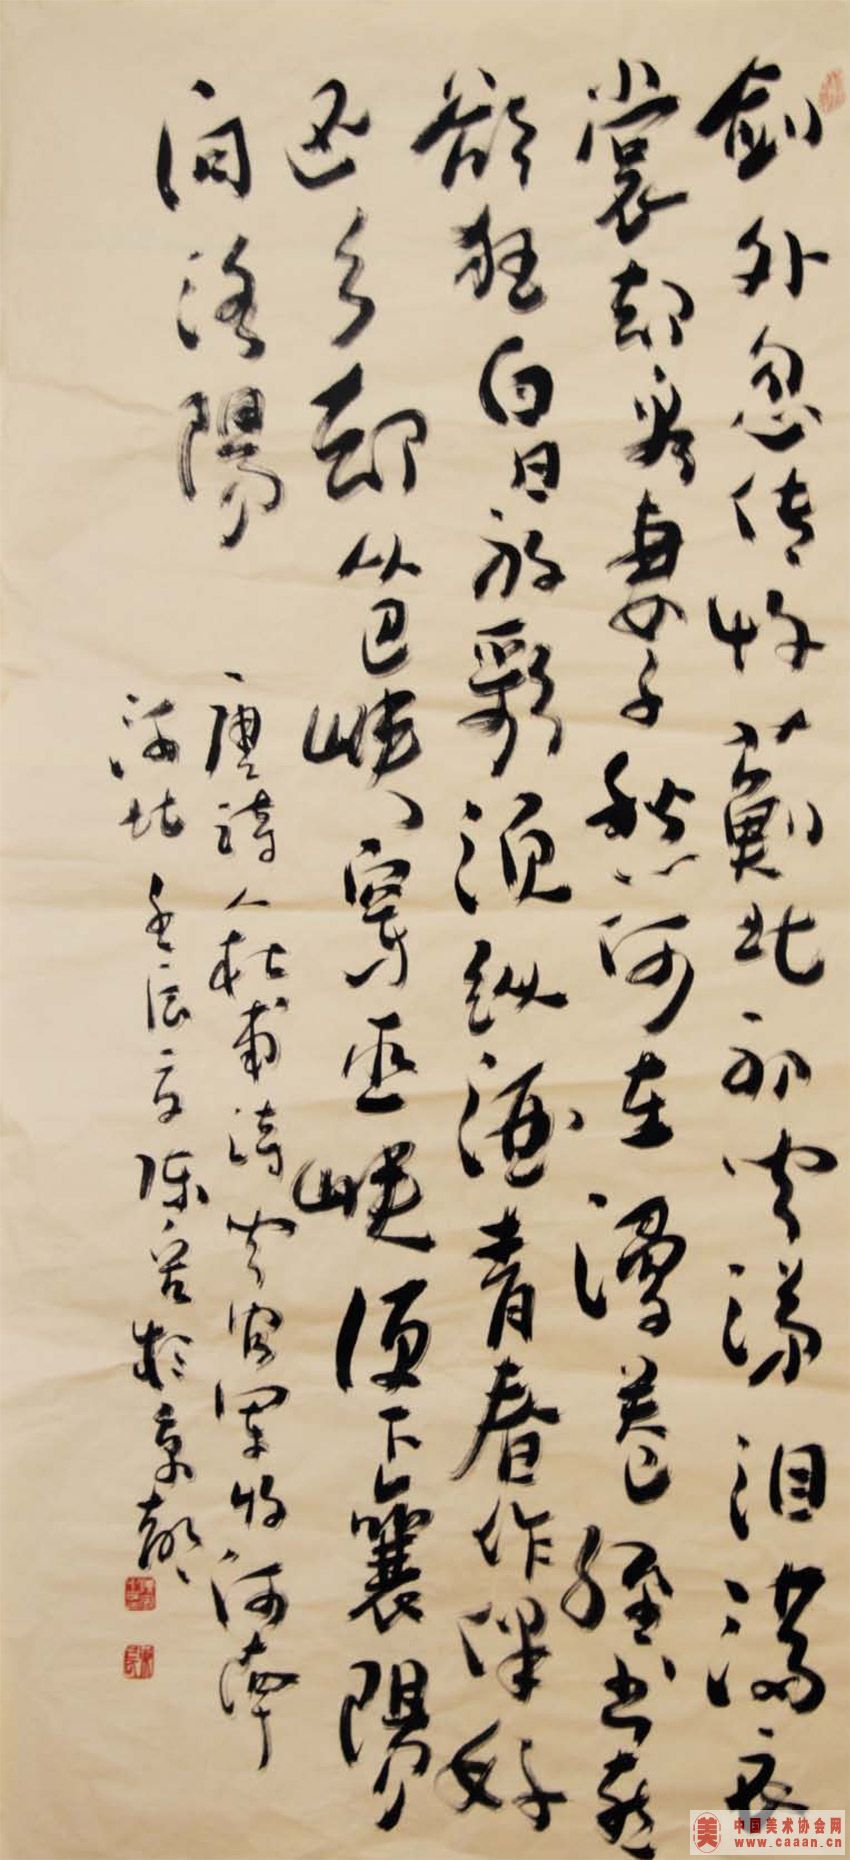 劍外忽传收薊北初闻涕泪滿衣
裳却看妻子愁何在漫卷經书喜
欲狂白日放歌须纵酒青春作伴好
还乡却从巴峡穿巫峡便下襄陽
向洛陽
唐诗人杜甫诗闻官军收河南
河北壬辰夏陈於京都
中国美术协会网
www.caaan.cn